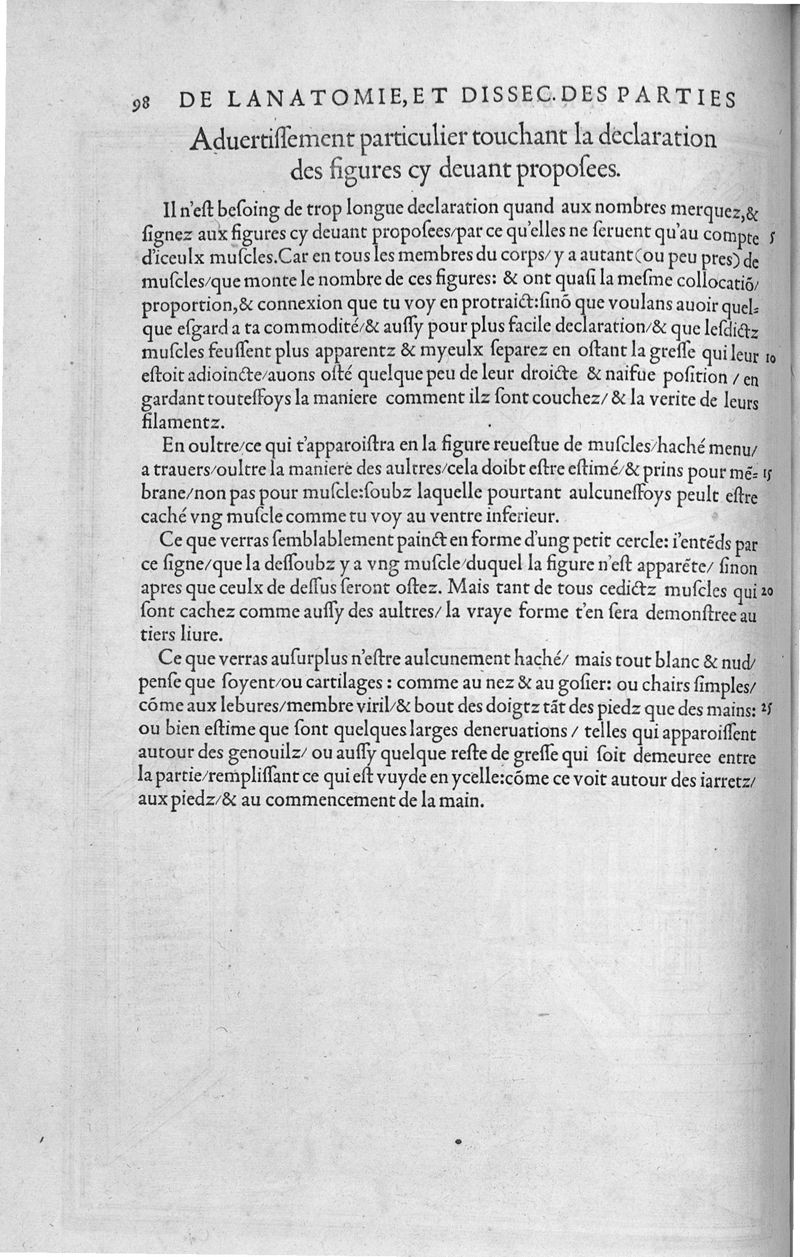 98 DE LANATOMIE, ET DISSEC. DES PARTIES
Aduertiſſement particulier touchant la declaration
des figures cy deuant propoſees.
Il n'eſt beſoing de trop longue declaration quand aux nombres merquez,&
ſignez aux figures cy deuant propoſees/par ce qu'elles ne ſeruent qu'au compte 5
d'iceulx muſcles.Car en tous les membres du corps/ y a autant (ou peu pres) de
muſcles/que monte le nombre de ces figures: & ont quaſi la meſme collocatiõ/
proportion,& connexion que tu voy en protraict:ſinõ que voulans auoir quel-
que eſgard a ta commodité/& auſſy pour plus facile declaration/& que leſdictz
muſcles feuſſent plus apparentz & myeulx ſeparez en oſtant la greſſe qui leur 10
eſtoit adioincte/auons oſté quelque peu de leur droicte & naifue poſition / en
gardant touteſſoys la maniere comment ilz ſont couchez/ & la verite de leurs
filamentz.
En oultre/ce qui t'apparoiſtra en la figure reueſtue de muſcles/haché menu/
a trauers/oultre la maniere des aultres/cela doibt eſtre eſtimé/& prins pour mẽ- 15
brane/non pas pour muſcle:ſoubz laquelle pourtant aulcuneſſoys peult eſtre
caché vng muſcle comme tu voy au ventre inferieur.
Ce que verras ſemblablement painct en forme d'ung petit cercle: i'entẽds par
ce ſigne/que la deſſoubz y a vng muſcle/duquel la figure n'eſt apparẽte/ ſinon
apres que ceulx de deſſus ſeront oſtez. Mais tant de tous cedictz muſcles qui 20
ſont cachez comme auſſy des aultres/ la vraye forme t'en ſera demonſtree au
tiers liure.
Ce que verras auſurplus n'eſtre aulcunement haché/ mais tout blanc & nud/
penſe que ſoyent/ou cartilages : comme au nez & au goſier: ou chairs ſimples/
cõme aux lebures/membre viril/& bout des doigtz tãt des piedz que des mains: 25
ou bien eſtime que ſont quelques larges deneruations / telles qui apparoiſſent
autour des genouilz/ ou auſſy quelque reſte de greſſe qui ſoit demeuree entre
la partie/rempliſſant ce qui eſt vuyde en ycelle:cõme ce voit autour des iarretz/
aux piedz/& au commencement de la main.